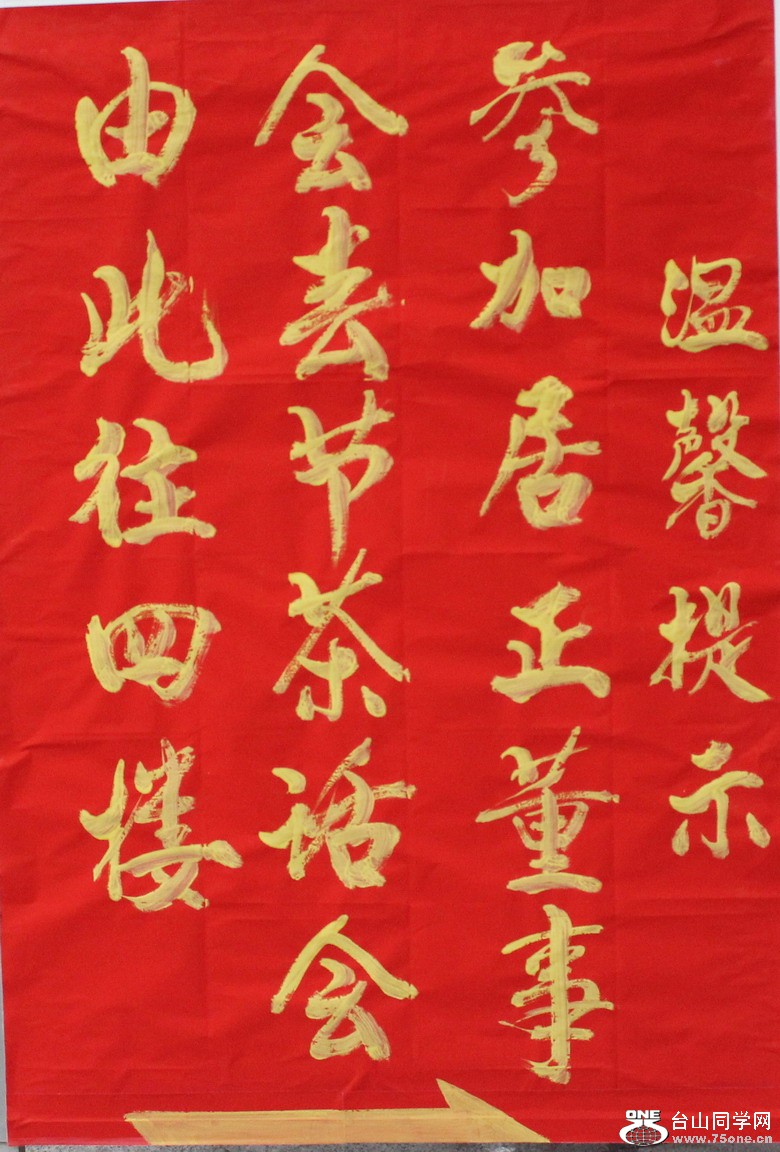 温馨提示
参加居正董事
会春节茶话会
由此往四楼
ONE
台山同学网
www.75one.cn